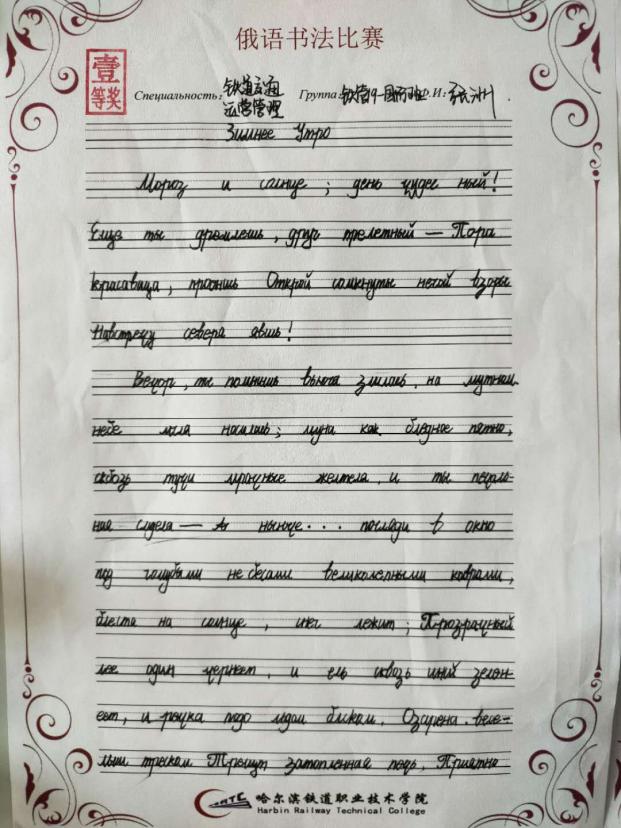 俄语书法比赛
壹
等奖
Специальность: 铁道交通
运营管理
Группа: 铁管19-国际班 Ф.И: 张洲
Зимнее Утро
Мороз и солнце; день чудес ный!
Еще ты дремлешь, друг прелетный — Пора
красавица, проснись Открой сомкнуты негой взоры
Навстречу севера явись!
Вечор, ты помнишь вьюга злилась, на мутном
небе мгла носилась; луна как бледное пятно,
сквозь тучи мрачные желтела, и ты печаль-
ная сидела — А нынче... погляди в окно
под голубыми не бесами великолепными коврами,
блестя на солнце, снег лежит; Прозрачный
лес один чернеет, и ель сквозь иней зелен-
еет, и речка подо льдом блес Озарена. весе-
лым треском Трещит затопленная печь. Приятно
哈尔滨铁道职业技术学院
Harbin Railway Technical College